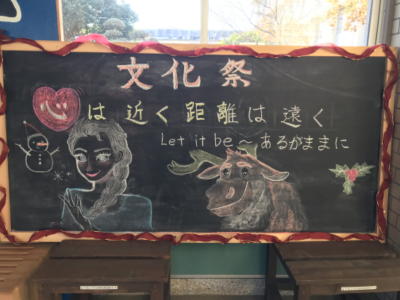 文化祭
心は近く距離は遠く
Let it be〜あるがままに